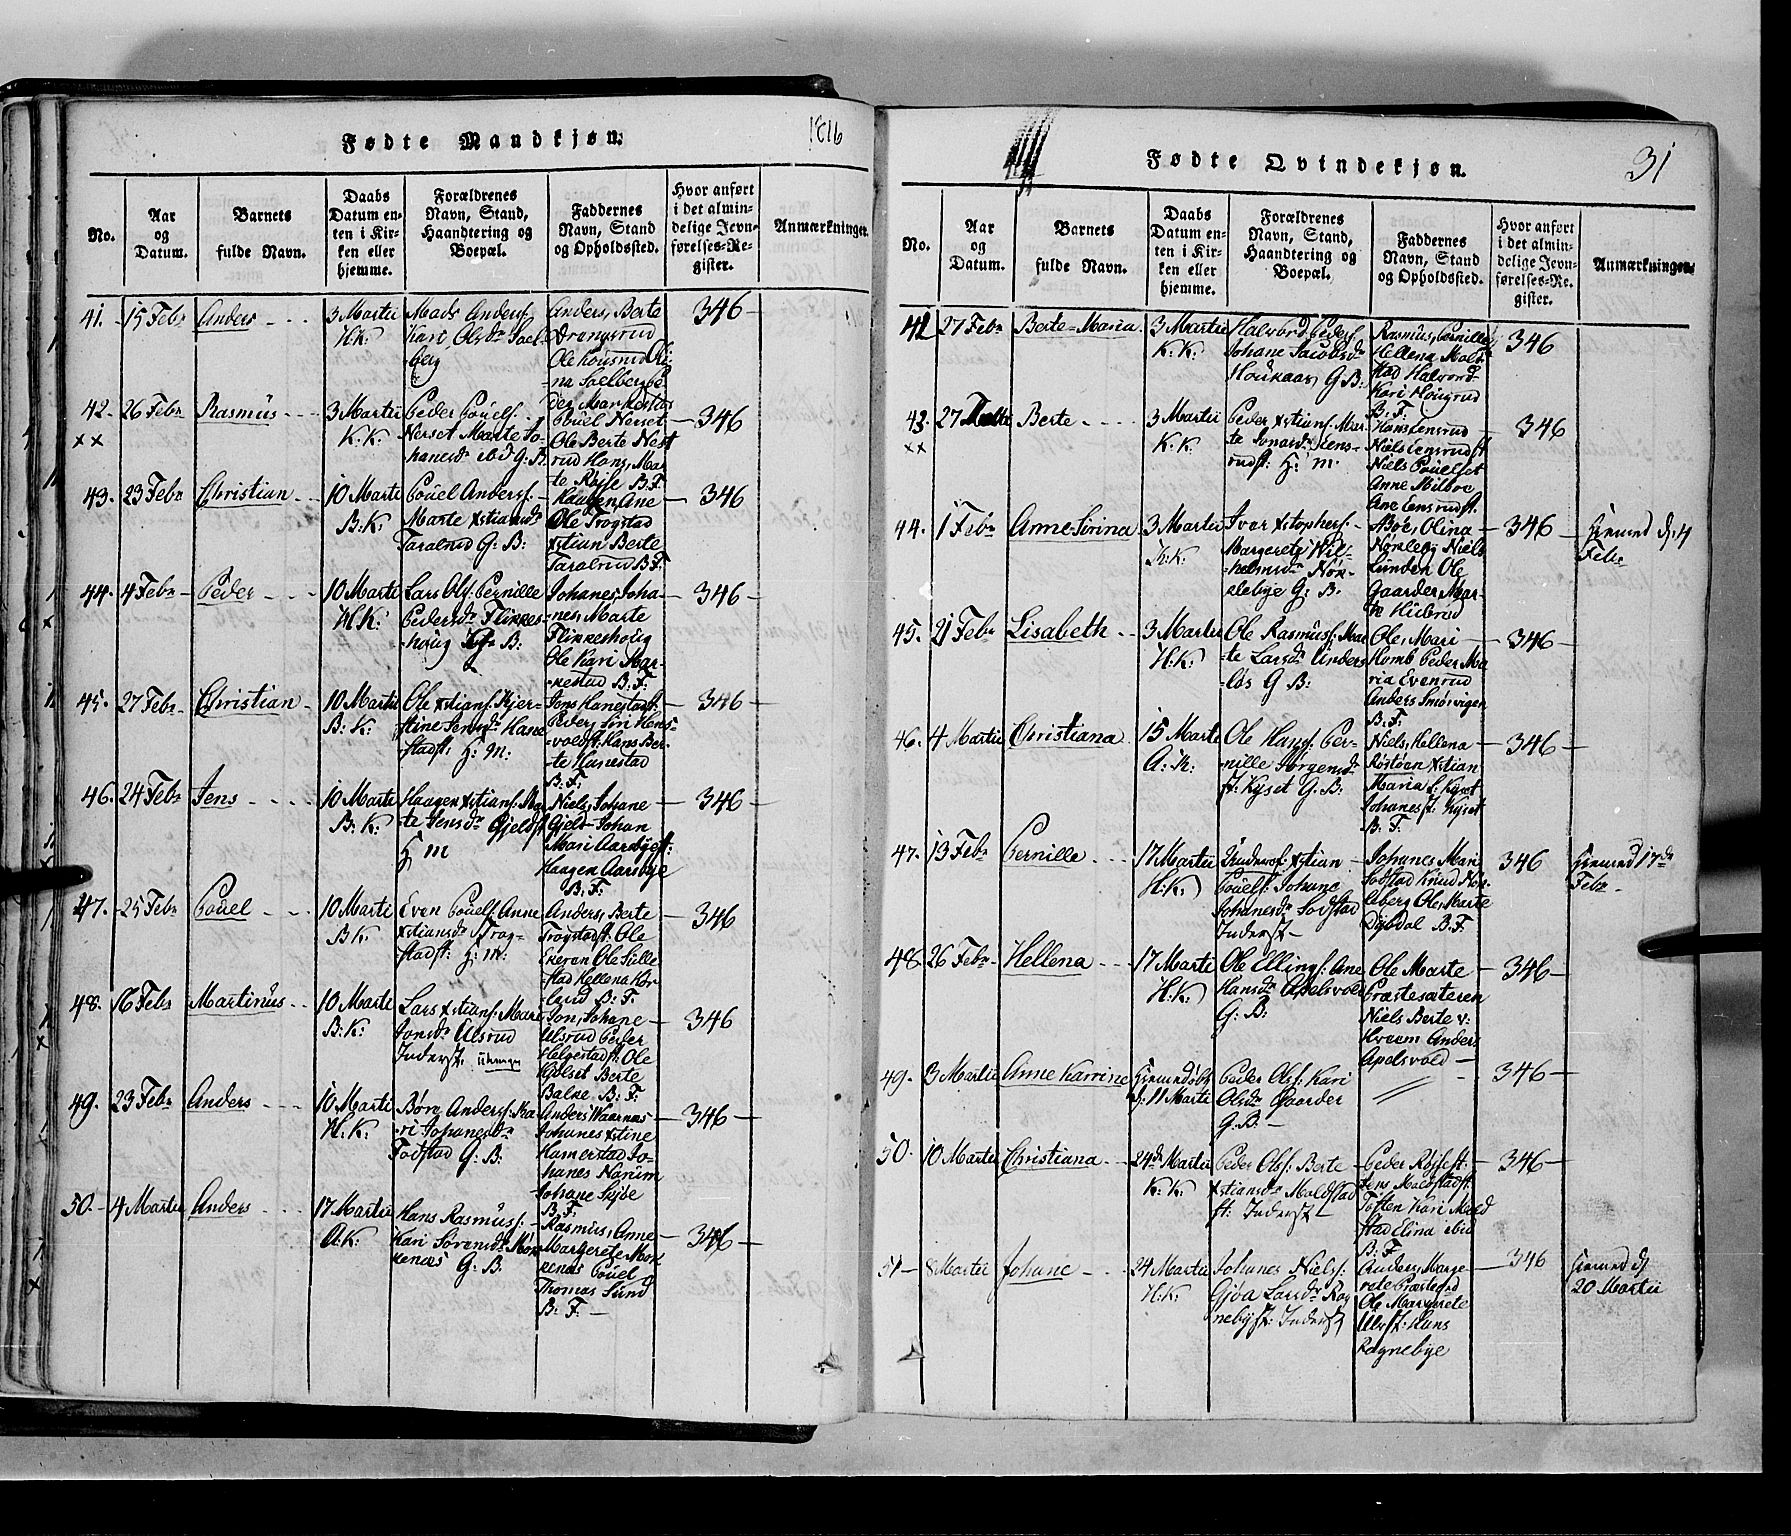 Fødte Mandkjøn.
1816
No.
Aar og Datum.
Barnets fulde Navn.
Daabs Datum enten i Kirken eller hjemme.
Forældrenes Navn, Stand, Haandtering og Boepæl.
Faddernes Navn, Stand og Opholdssted.
Hvor anført i det almindelige Jevnførelses-Register.
Anmærkninger.
41. 15 Febr Anders 3 Martii H.K.
Mads Anders:
Kari Olsdr Soel-
berg
Anders, Berte
Drengsrud
346
42. 26 Febr Rasmus 3 Martii K.K.
xx
Peder Pouels:
Nerset Marte Jo-
hanesdr ibid G.B.
Pouel Nerset
Ole Berte
rud Hans, Mar-
te B.F.
346
43. 23 Febr Christian 10 Marti B:K:
Pouel Anders:
Marte xstiansdr
Taralrud G:B:
Haugen Ane
Ole Trogstad
xstian Berte
Taralrud B.F.
346
44. 4 Febr Peder 10 Marti H.K:
Lars Ols: Pernille
Pedersdr Flikkes-
houg G. B:
Johanes, Joha-
nes, Marte
Flikkeshoug
Ole Kari Mar-
kestad B.F.
346
45. 27 Febr Christian 10 Marti B:K:
Ole xstians: Kjer-
stine Jensdr Hane-
stadst: H: M:
Jens Hanestadst:
Peder Siri Hens-
voldst: Hans Ber-
te Hanestad
B:F:
346
46. 24 Febr Jens 10 Marti B:K:
Haagen xstians: Ma-
te Jensdr Gjeldst
H M
Niels, Johane
Gjeld Johan
Mari Aarsbyest:
Haagen Aarsbye
B:F:
346
47. 25 Febr Pouel 10 Marti B K:
Even Pouels: Anne
xstiansdr Trog-
stadst: H: M:
Anders, Berte
Trogstadst: Ole
Ekeren Ole Sille-
stad Hellena Kor-
lund B: F.
346
48. 16 Febr Martinus 10 Marti B:K:
Lars xstians: Mari
Jonsdr Ulsrud
Inderst.
Jon, Johane
Ulsrud Peder
Helgestadst: Ole
Hølset Berte
Balke B: F:
346
49. 23 Febr Anders 10 Marti H.K:
Børe Anders: Ka-
ri Johanesdr
Fodstad G: B:
Anders Waarnæs
Johanes xstine
Hamerstad Jo-
hanes Narum
Johane Seyse
B.F:
346
50. 4 Martii Anders 17 Martii A:K:
Hans Rasmus:
Kari Sørensdr Mør-
kenæs G: B:
Rasmus, Anne
Margrete Mør-
kenæs Pouel
Thomas Sund
B: F.
346
Fødte Qvindekjøn.
31
No.
Aar og Datum.
Barnets fulde Navn.
Daabs Datum enten i Kirken eller hjemme.
Forældrenes Navn, Stand, Haandtering og Boepæl.
Faddernes Navn, Stand og Opholdssted.
Hvor anført i det almindelige Jevnførelses-Register.
Anmærkninger.
42 27 Febr Berte-Maria 3 Martii K.K.
Halvord Peders:
Johane Jacobsdr
Houkaas G B:
Rasmus, Pernille
Hellena Mæl-
stad Halvord
Kari Hougrud
B: F:
346
43. 27 Berte 3 Martii K.K.
xx
Peder xstians: Mar-
te Jonasdr Eens-
rudst: H: M:
Hans Eensrud
Niels Eensrudst
Niels Pouelset
Anne Milboe
Ane Eensrudst.
346
44. 1 Febr Anne Sirina 3 Martii H.K
Iver xstophers:
Margrete Wil-
helmsdr Nør-
slebye G. B.
Boe, Olina
Nørsleby Niels
Lunden Ole
Gaarder Mar-
te Hilsrud
346
Hiemmed d: 4 Febr
45. 21 Febr Lisabeth 3 Martii H.K:
Ole Rasmus: Mar
te Larsdr Unders-
los G B:
Ole, Mari
Komb Peder Ma-
ria Evenrud
Anders Smørvigen
B.F:
346
46. 4 Martii Christiana 15 Marti A:K:
Ole Hans: Per-
nille Jørgensdr
st: Kyset G.B:
Niels, Hellena
Røstøen xstian
Maria f: Kyset
Johanes f: Kyset
B: F.
346
47. 13 Febr Pernille 17 Martii H.K:
xstian
Pouels: Johane
Johanesdr Sodstad
Inderst
Johanes Mari
Sodstad Knud Nor-
aberg Ole, Marte
Dybdal B.F
346
Hiemmed 17de Febr
48. 26 Febr Hellena 17 Marti H.K:
Ole Ellings: Ane
Hansdr Apelsvold
G: B:
Ole Marte
Præstesæteren
Niels Berte v:
Kreem Anders
Apelsvold
346
49. 3 Martii Anne Karrine Hiemmedøbt d: 11 Marti
Peder Ols: Kari
Olsdr Gaarder
G.B.
346
50. 10 Martii Christiana 24de Martii K: K:
Peder Ols: Berte
xstiansdr Mæhlstad
st: Inderst
Peder Røisest:
Jens Mælstadst:
Toften Kari Mæl
stad Elina ibid
B: F
346
51 8 Martii Johane 24 Martii H.K:
Johanes Niels:
Gjøa Larsdr Rag
nebyst: Inderst
Anders, Marge-
rete Præsterud
Ole Margerete
Ulvst: Hans
Ragnebye
346
Hiemmed d
20 Martii